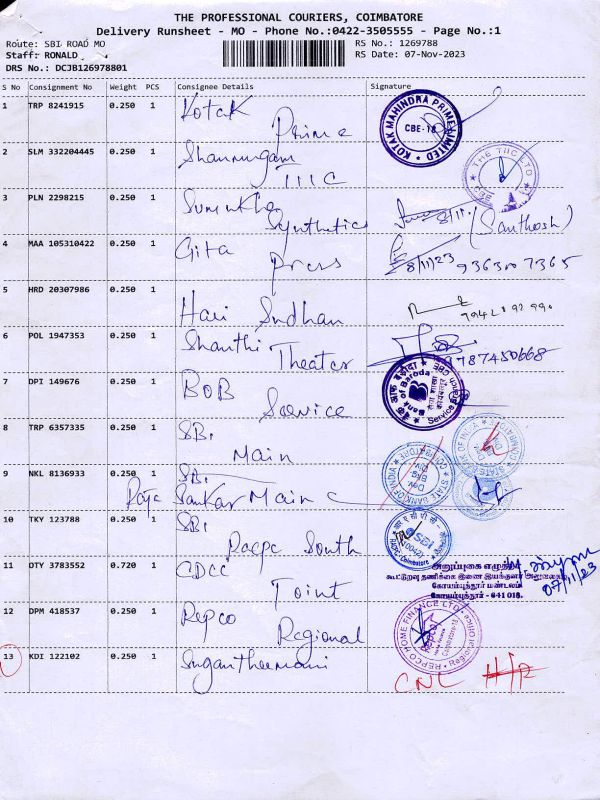 THE PROFESSIONAL COURIERS, COIMBATORE
Delivery Runsheet - MO - Phone No.:0422-3505555 - Page No.:1
Route: SBI ROAD MO RS No.: 1269788
Staff: RONALD RS Date: 07-Nov-2023
DRS No.: DCJB126978801
S No Consignment No Weight PCS Consignee Details Signature
1 TRP 8241915 0.250 1 Kotak Prime
KOTAK MAHINDRA PRIME LIMITED
CBE-18
2 SLM 332204445 0.250 1 Shanmugam
THE TIIC LTD
3 PLN 2298215 0.250 1 Synthetics 8/11 (Santhosh)
4 MAA 105310422 0.250 1 Gita Press 8/11/23
5 HRD 20307986 0.250 1 Hari Sudhan
6 POL 1947353 0.250 1 Shanthi Theater 9787450668
7 DPI 149676 0.250 1 BOB Service
Bank of Baroda
8 TRP 6357335 0.250 1 SBI Main
9 NKL 8136933 0.250 1 SBI
Raja Sankar Main
STATE BANK OF INDIA
COIMBATORE
10 TKY 123788 0.250 1 SBI Racpc South
SBI
11 OTY 3783552 0.720 1 CDCC Joint
கோயம்புத்தூர் மண்டலம்
கோயம்புத்தூர் - 641 018.
07/11/23
12 DPM 418537 0.250 1 Repco Regional
REPCO HOME FINANCE LTD
13 KDI 122102 0.250 1 CNL